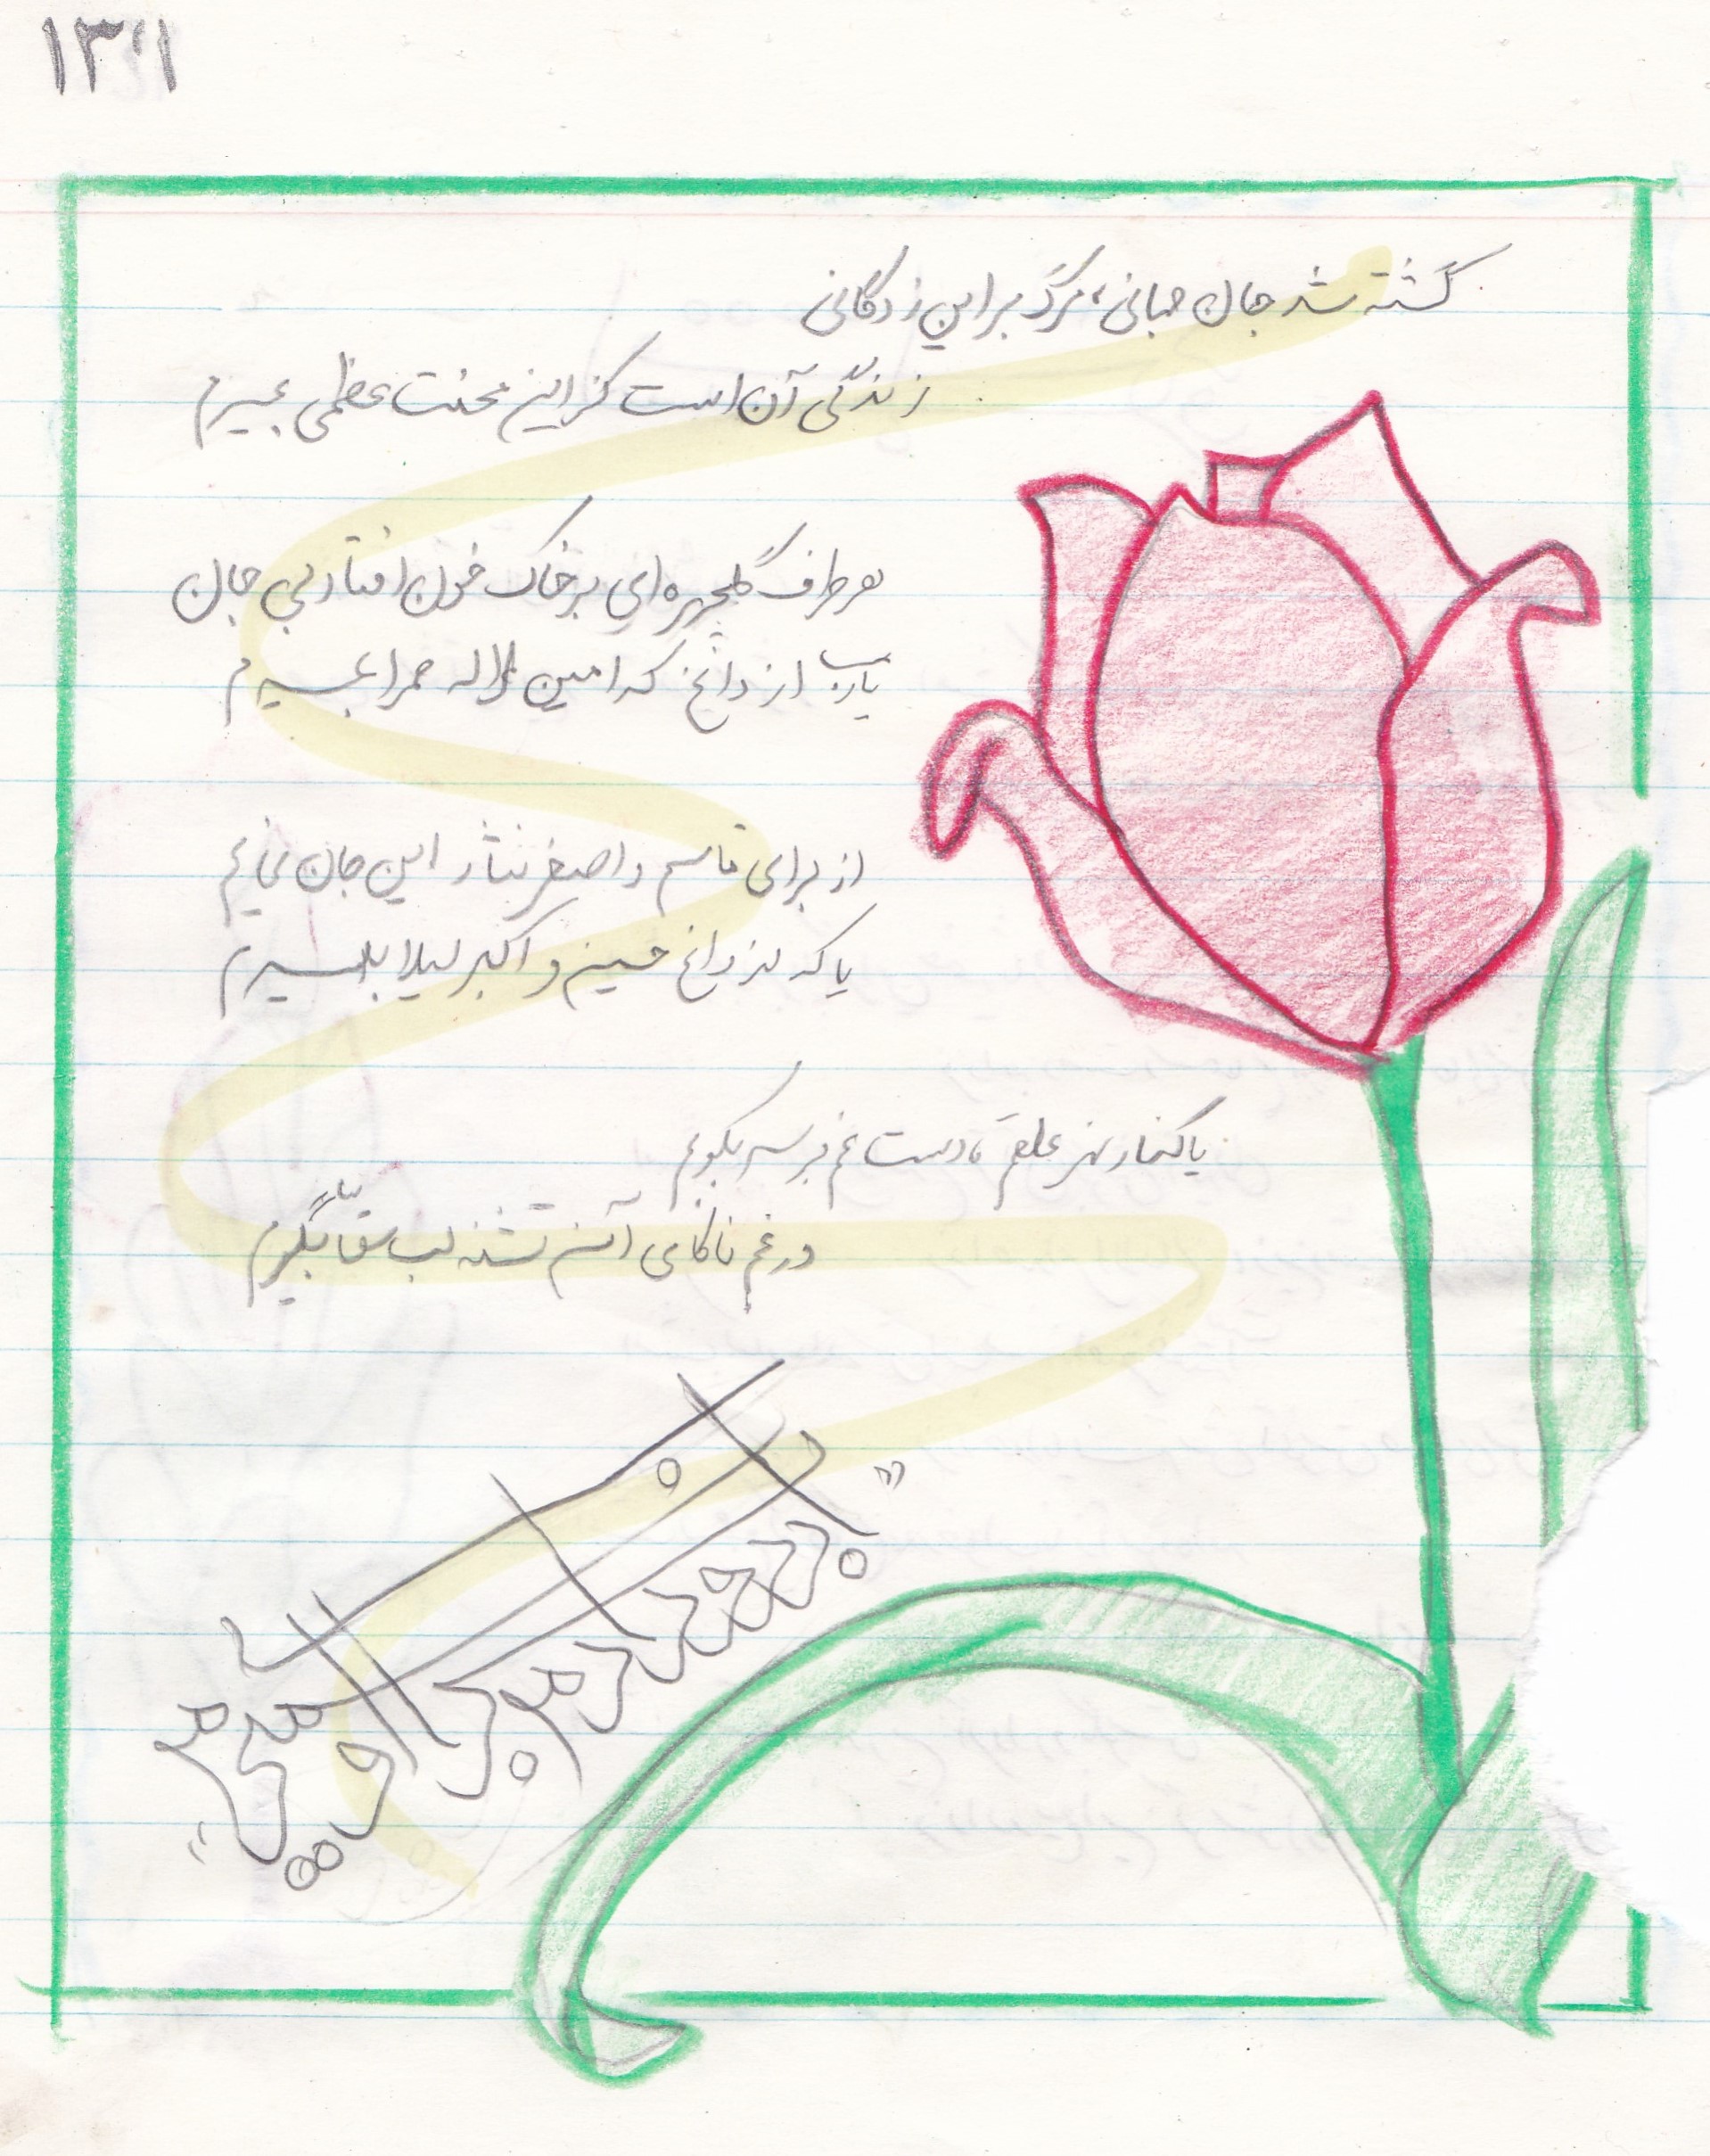 ۱۳۱
گشته شد جان جهانی، مرگ بر این زندگانی
زندگی آن است کز این محنت عظمی بمیرم
هر طرف گلچهره‌ای بر خاک خون افتاد بی جان
یارب از داغ کدامین لاله حمرا بمیرم
از برای قاسم و اصغر نثار این جان نمایم
یا که از داغ حسین و اکبر لیلا بمیرم
یا کنار نهر علقم، دست غم بر سر بکوبم
در غم ناکامی آن تشنه لب سقا بگریم